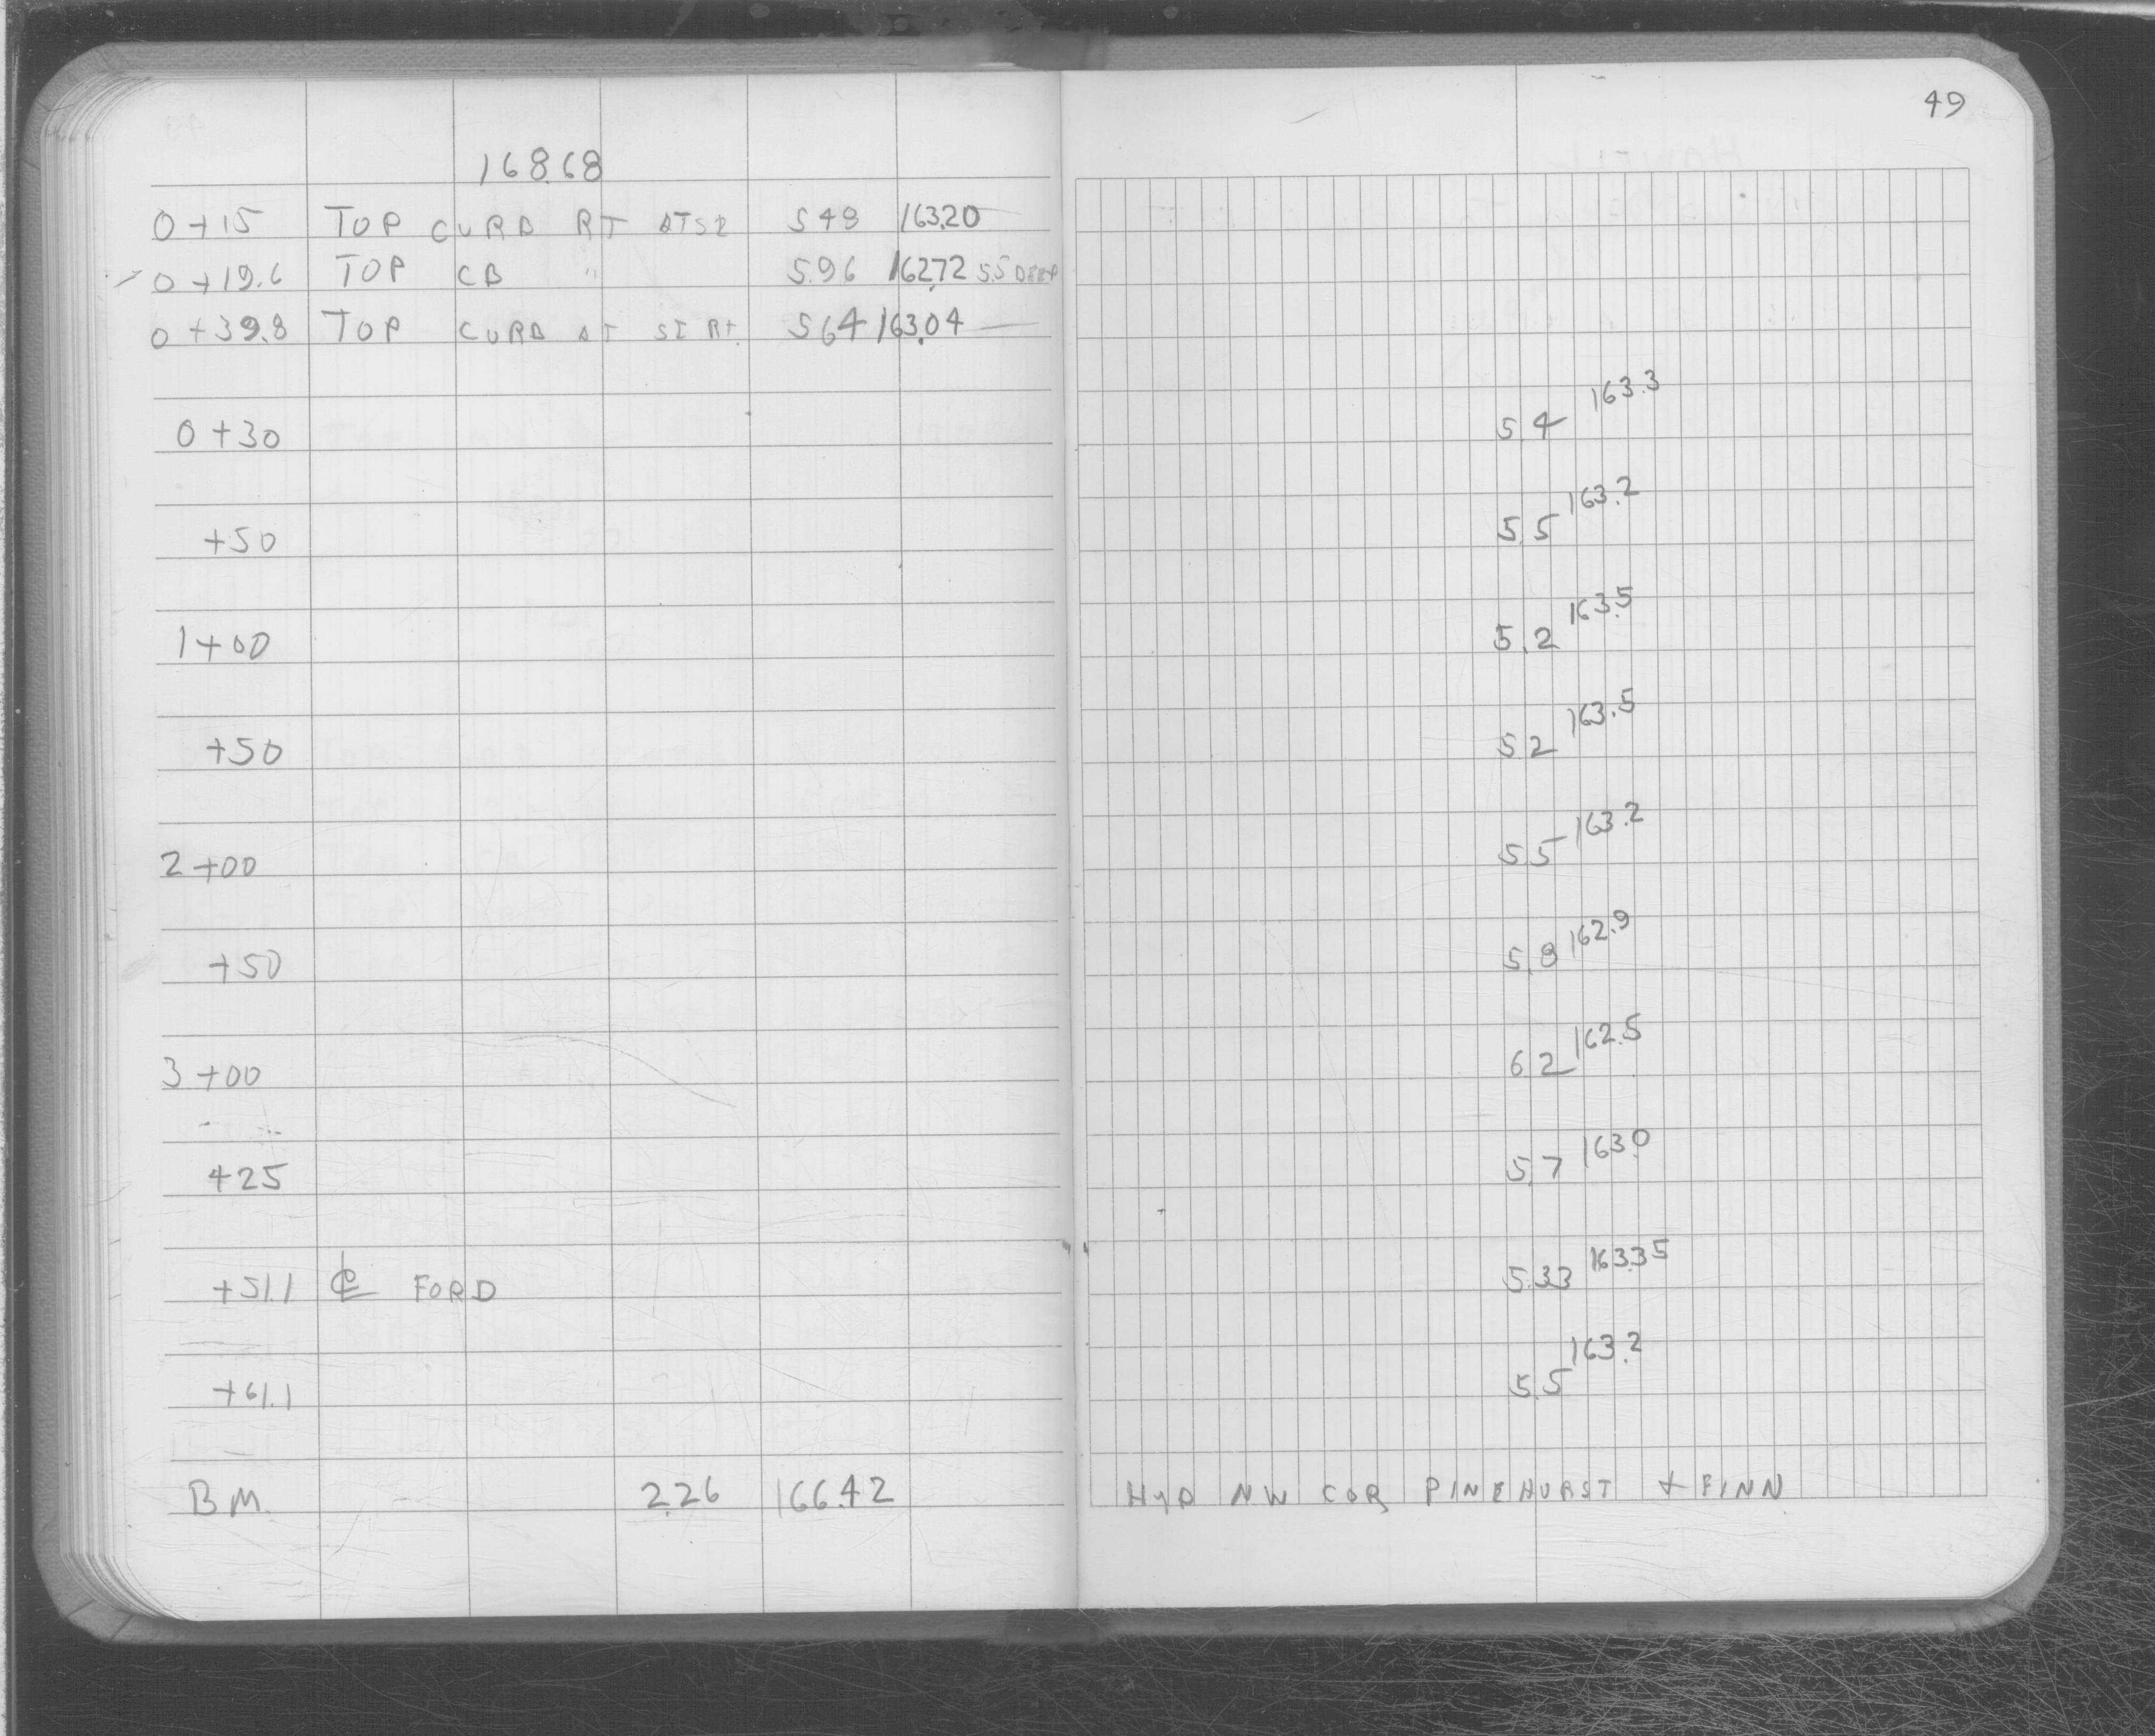 49
168.68
0+15 TOP CURB RT AT SI 5.48 163.20
0+19.6 TOP CB " 5.96 162.72 5.5 DEEP
0+39.8 TOP CURB AT SI RT. 5.64 163.04
0+30 5.4 163.3
+50 5.5 163.2
1+00 5.2 163.5
+50 5.2 163.5
2+00 5.5 163.2
+50 5.8 162.9
3+00 6.2 162.5
+25 5.7 163.0
+51.1 ℄ FORD 5.33 163.35
+61.1 5.5 163.2
B.M. 2.26 166.42 HYD NW COR PINEHURST + FINN